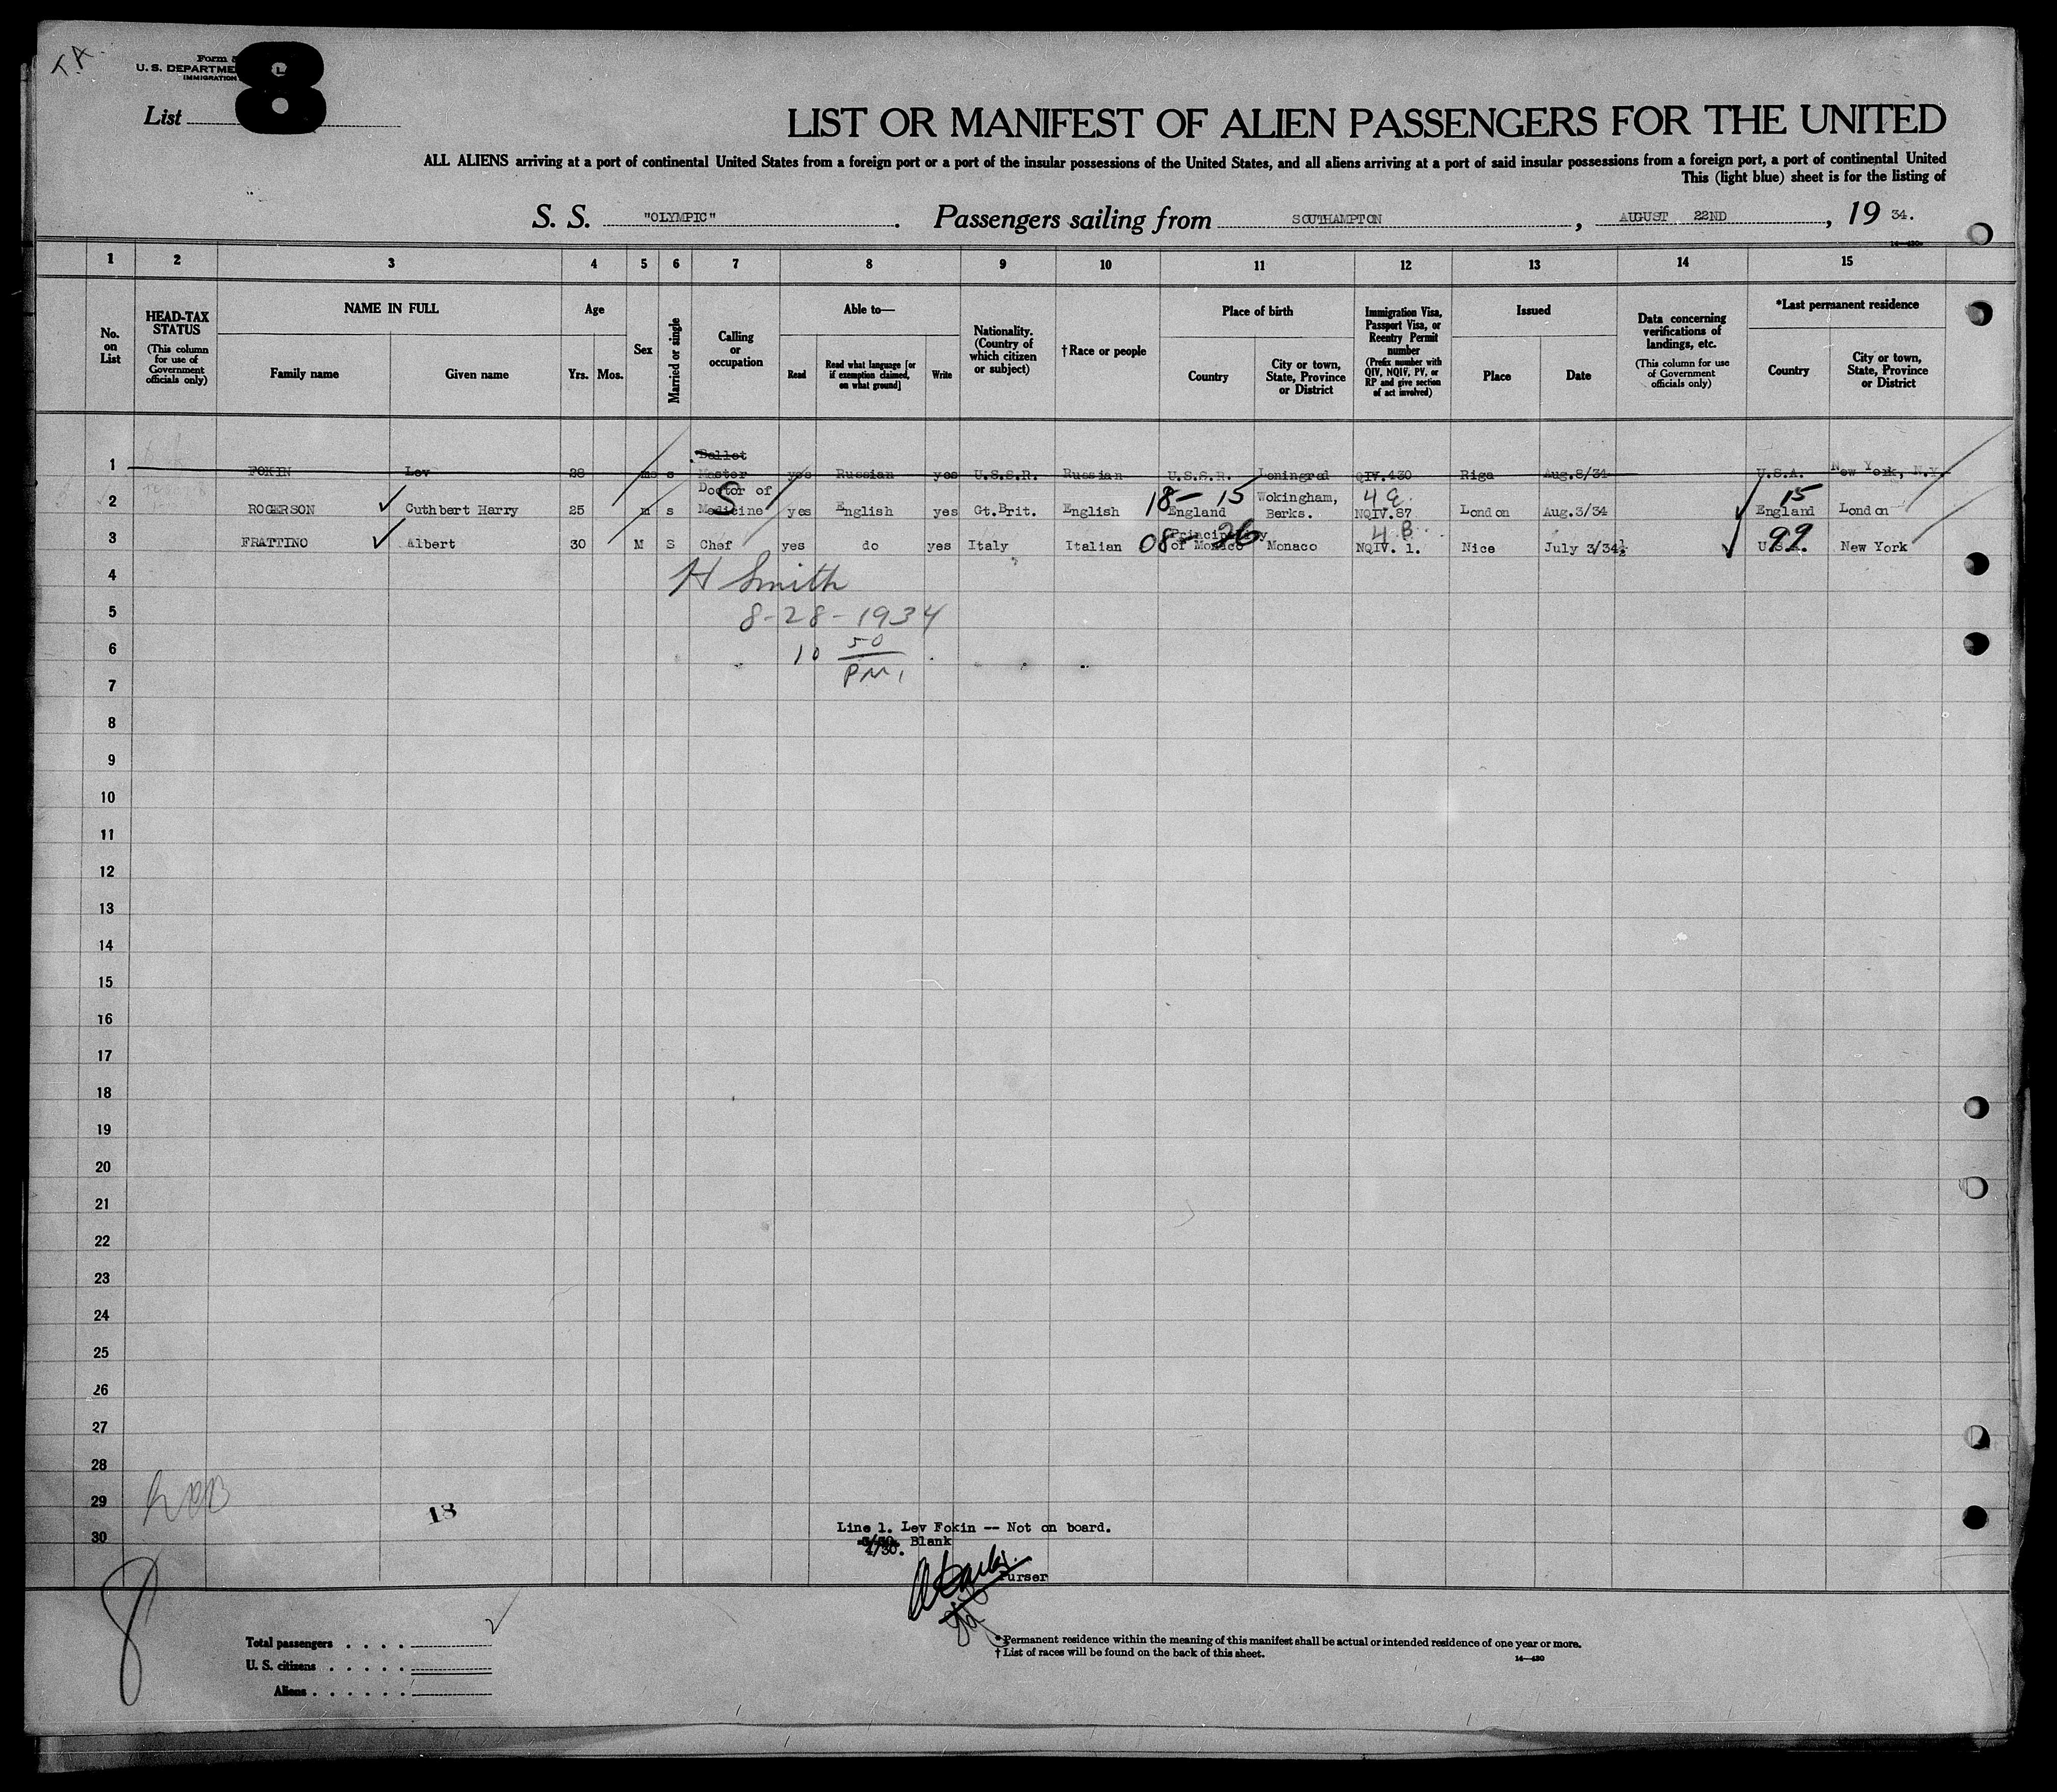 T.A.
Form
U. S. DEPARTME L
IMMIGRATION
List 8
LIST OR MANIFEST OF ALIEN PASSENGERS FOR THE UNITED
ALL ALIENS arriving at a port of continental United States from a foreign port or a port of the insular possessions of the United States, and all aliens arriving at a port of said insular possessions from a foreign port, a port of continental United
This (light blue) sheet is for the listing of
S. S. "OLYMPIC". Passengers sailing from SOUTHAMPTON, AUGUST 22ND, 19 34.
14—480
1 2 3 4 5 6 7 8 9 10 11 12 13 14 15
No. on List
HEAD-TAX STATUS (This column for use of Government officials only)
NAME IN FULL
Family name Given name
Age
Yrs. Mos.
Sex
Married or single
Calling or occupation
Able to—
Read Read what language [or if exemption claimed, on what ground] Write
Nationality. (Country of which citizen or subject)
†Race or people
Place of birth
Country City or town, State, Province or District
Immigration Visa, Passport Visa, or Reentry Permit number (Prefix number with QIV, NQIV, PV, or RP and give section of act involved)
Issued
Place Date
Data concerning verifications of landings, etc. (This column for use of Government officials only)
*Last permanent residence
Country City or town, State, Province or District
1 FOKIN Lev 28 m s Ballet Master yes Russian yes U.S.S.R. Russian U.S.S.R. Leningrad QIV.430 Riga Aug.8/34 U.S.A. New York, N.Y.
2 ROGERSON Cuthbert Harry 25 m s Doctor of Medicine S yes English yes Gt.Brit. English 18-15 England Wokingham, Berks. 4 E NQIV.87 London Aug.3/34 15 England London
3 FRATTINO Albert 30 M S Chef yes do yes Italy Italian 08-26 Principality of Monaco Monaco 4 B NQIV. 1. Nice July 3/34 99 U.S.A. New York
4 H Smith
5 8-28-1934
6 10 50
7 PM.
8
9
10
11
12
13
14
15
16
17
18
19
20
21
22
23
24
25
26
27
28
29 18
30
Line 1. Lev Fokin -- Not on board.
4/30. Blank
Purser
8
Total passengers . . . . 2
U. S. citizens . . . . .
Aliens . . . . . .
*Permanent residence within the meaning of this manifest shall be actual or intended residence of one year or more.
† List of races will be found on the back of this sheet.
14—480